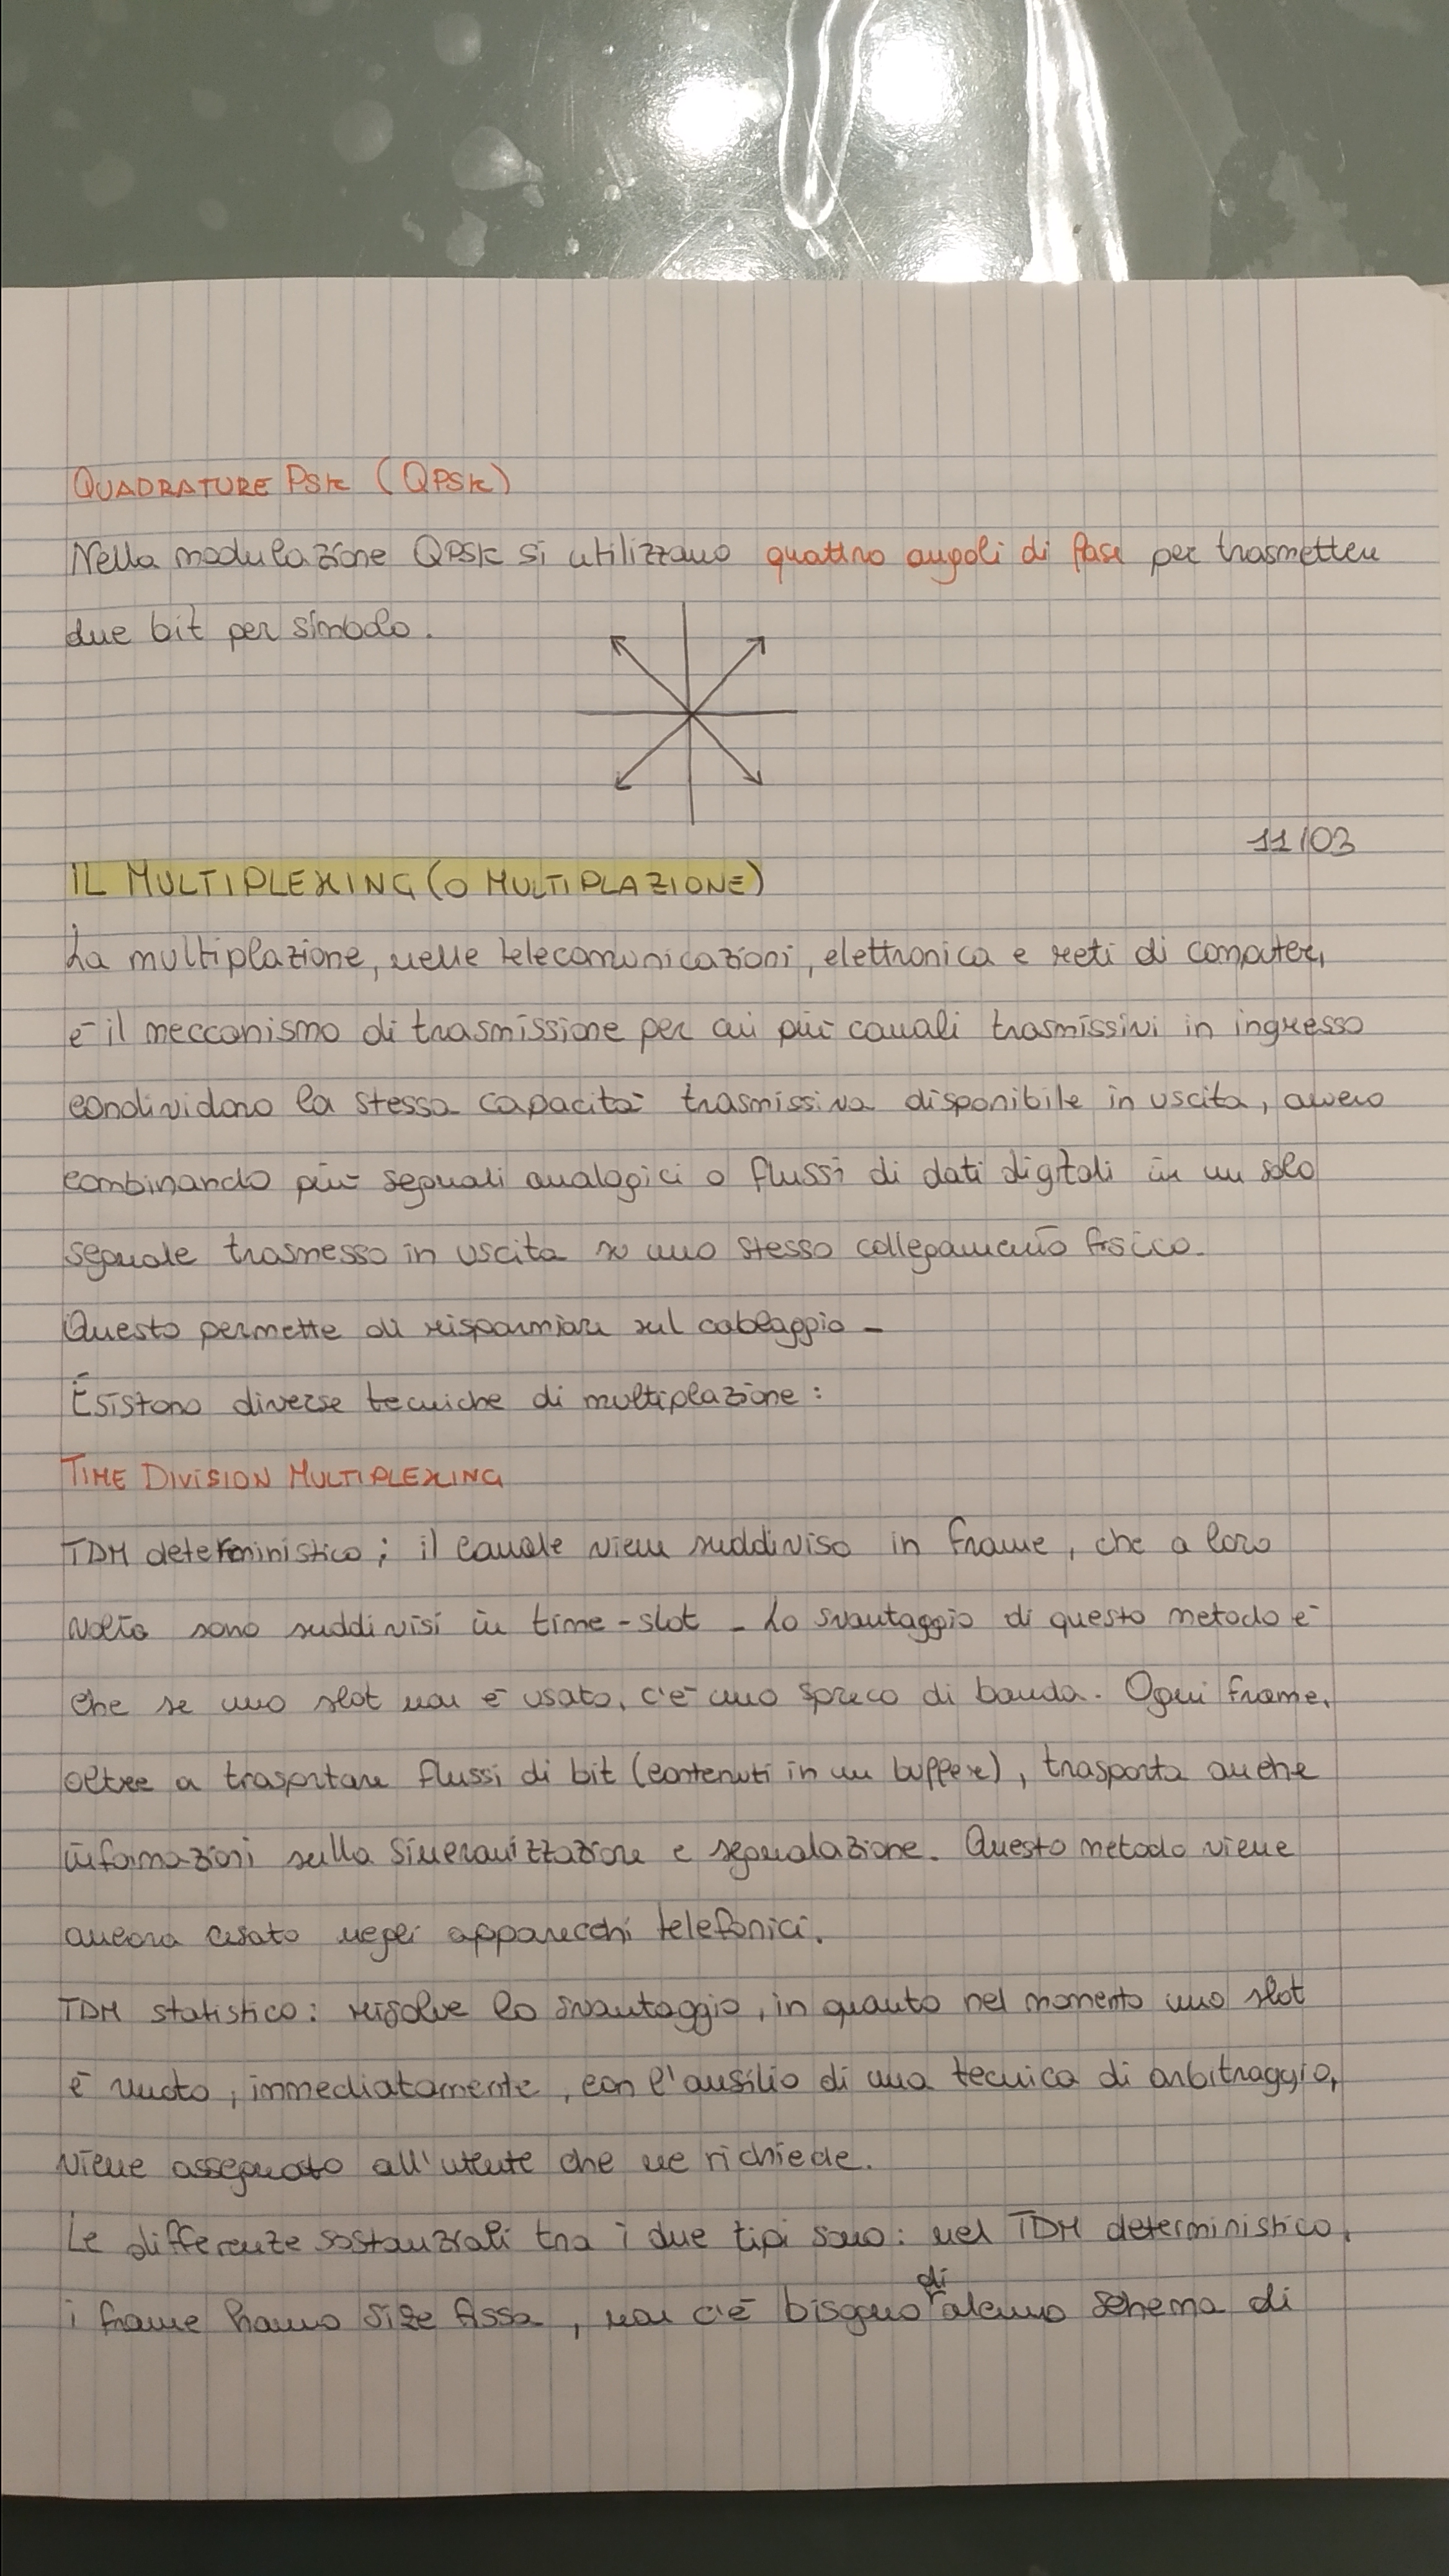 QUADRATURE PSK (QPSK)
Nella modulazione QPSK si utilizzano quattro angoli di fase per trasmettere
due bit per simbolo.
11/03
IL MULTIPLEXING (O MULTIPLAZIONE)
La multiplazione, nelle telecomunicazioni, elettronica e reti di computer,
è il meccanismo di trasmissione per cui più canali trasmissivi in ingresso
condividono la stessa capacità trasmissiva disponibile in uscita, ovvero
combinando più segnali analogici o flussi di dati digitali in un solo
segnale trasmesso in uscita su uno stesso collegamento fisico.
Questo permette di risparmiare sul cablaggio -
Esistono diverse tecniche di multiplazione:
TIME DIVISION MULTIPLEXING
TDM deterministico; il canale viene suddiviso in frame, che a loro
volta sono suddivisi in time-slot - Lo svantaggio di questo metodo è
che se uno slot non è usato, c'è uno spreco di banda. Ogni frame,
oltre a trasportare flussi di bit (contenuti in un buffer), trasporta anche
informazioni sulla sincronizzazione e segnalazione. Questo metodo viene
ancora usato negli apparecchi telefonici.
TDM statistico: risolve lo svantaggio, in quanto nel momento uno slot
è vuoto, immediatamente, con l'ausilio di una tecnica di arbitraggio,
viene assegnato all'utente che ne richiede.
Le differenze sostanziali tra i due tipi sono: nel TDM deterministico,
i frame hanno size fissa, non c'è bisogno di alcuno schema di